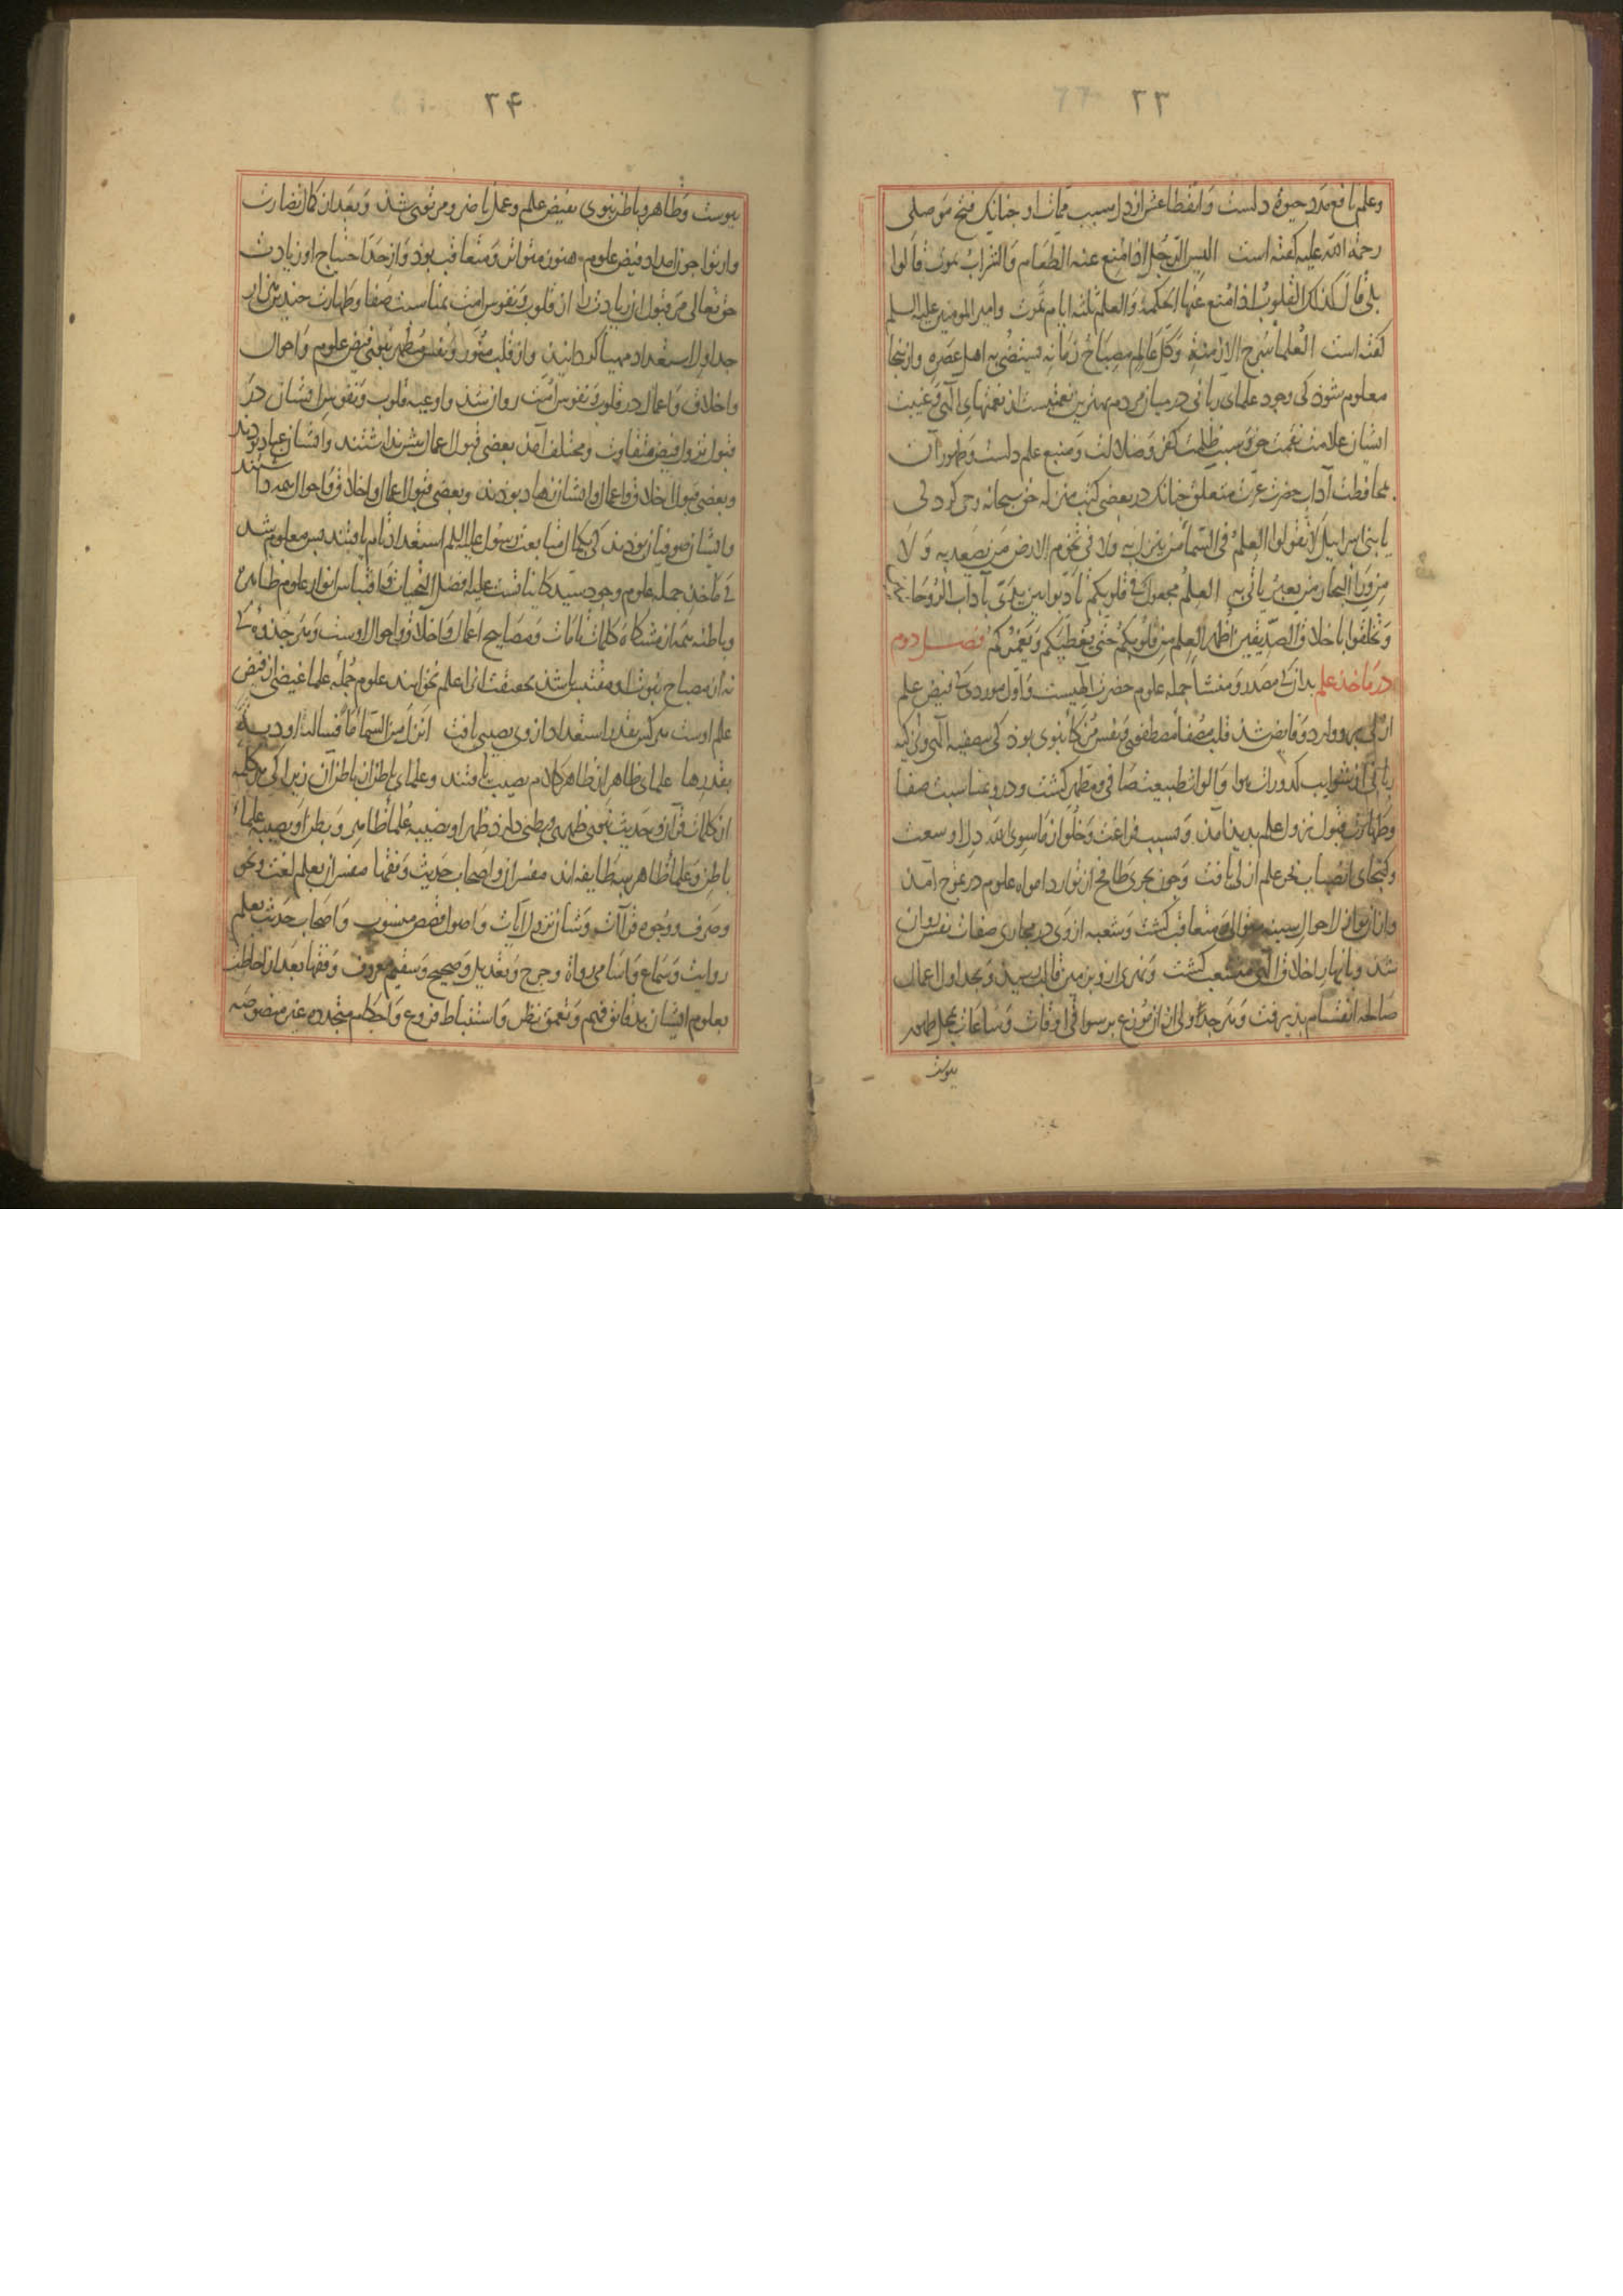 ۲۳
وعلم نافع مدد حیوة دلست وانقطاعش از دل سبب ممات او جنانک فتح موصلی
رحمة الله علیه کفته است الیس الرجل اذا مُنع عنه الطعام والشراب یموت قالوا
بلی قال کذلک القلوبُ اذا مُنع عنها الحکمة والعلم ثلثة ایام تموت وامیر المومنین علیه السلم
کفته است العُلماء سُرج الازمنة وکل عالم مصباحُ زمانه یستضیٔ به اهل عصره وازینجا
معلوم شوذ کی وجود علمای ربانی در میان مردم بهترین نعمتیست از نعمتهای الهی وغیبت
ایشان علامت نقمت حق وسبب ظلمت کفر وضلالت ومنبع علم دلست وظهور آن
بمحافظت آداب حضرت عزت متعلق جنانک در بعضی کتب منزله حق سبحانه وحی کرد کی
یا بنی اسراییل لا تقولوا العِلمُ فی السماء من ینزل به ولا فی تخوم الارض من یصعد به ولا
من وراء البحار من یعبر یاتی به العِلمُ مجعول فی قلوبکم تادبوا بین یدی بآداب الروحا
وتخلقوا باخلاق الصدیقین اُظهر العِلم من قلوبکم حتی یُغطیَکم ویَغمُرکم فصل دوم
در ماخذ علم بدان کی مصدر ومنشأ جمله علوم حضرت الهیست واول موردی کی فیض علم
ازلی برو وارد وفایض شذ قلب مصفأ مصطفوی ونفس مزکأ نبوی بوذ کی بتصفیه الهی وتزکیه
ربانی از شوایب کدورات هوا والواث طبیعت صافی ومطهر کشت ودرو بمناسبت صفا
وطهارت قبول نزول علم بدید آمذ وبسبب فراغت وخلو از ماسوی الله دل او سعت
وکنجای انصباب بحر علم ازلی یافت وجون بحری طافح از توارد امواه علوم در تموج آمذ
وازان زمان لاحوال سینه متوالی ومتعاقب کشت وشعبه ازوی در مجاری صفات نفس روان
شذ وبانهار اخلاق الهی منشعب کشت ونهری ازو بزمین قالب رسیذ وبجداول اعمال
صالحه انقسام بذیرفت وهر جدولی ازان موزع بر سواقی اوقات وساعات بمحل ظهور
بیوست
۲۴
بیوست وظاهر وباطن نبوی بفیض علم وعمل ناضر ومرتوی شذ وبعد از کمال نضارت
وارتوا جون امداد فیض علوم هنوز متواتر ومتعاقب بوذ واز حد احتیاج او زیادت
حق تعالی مر قبول آن زیادت را از قلوب ونفوس امت بمناسبت صفا وطهارت جندین هزار
جداول استعداد مهیا کردانید واز قلب منور ونفس مطهر نبوی فیض علوم واحوال
واخلاق واعمال در قلوب ونفوس امت روان شذ واوعیه قلوب ونفوس ایشان در
قبول نزول فیض متفاوت ومختلف آمذ بعضی قبول اعمال بیش نداشتند وایشان عباد بودند
وبعضی قبول اخلاق واعمال وایشان زهاد بوذند وبعضی قبول اعمال واخلاق واحوال همه داشتند
وایشان صوفیان بوذند کی بکمال متابعت رسول علیه السلم استعداد تام یافتند بس معلوم شد
کی ماخذ جمله علوم وجود سید کایناتست علیه افضل التحیات واقتباس انوار علوم ظاهره
وباطنه همه از مشکاة کلمات تامات ومصابیح اعمال واخلاق واحوال اوست وهر جذوه کی
نه از مصباح نبوت او مقتبس باشذ بحقیقت انرا علم نخوانند علوم جملهٔ علما غیضی از فیض
علم اوست هر کس بقدر استعداد ازوی نصیبی یافت انزل من السماء ماء فسالت اودیة
بقدرها علمای ظاهر از ظاهر کلام نصیب یافتند وعلمای باطن از باطن آن زیرا کی هر کلمه
از کلمات قرآن وحدیث نبوی ظهری وبطنی دارذ ظهر او نصیبه علماء ظاهر وبطن او نصیبه علماء
باطن وعلماء ظاهر سه طایفه اند مفسران واصحاب حدیث وفقها مفسران بعلم لغت ونحو
وصرف ووجوه قرآات وشأن نزول آیات واصول قصص منسوب واصحاب حدیث بعلم
روایت وسماع واسامی رواة وجرح وتعدیل وصحیح وسقیم معروف وفقها بعد از احاطت
بعلوم ایشان بدقایق فهم وتعمق نظر واستنباط فروع واحکام متجدده غیر منصوصه